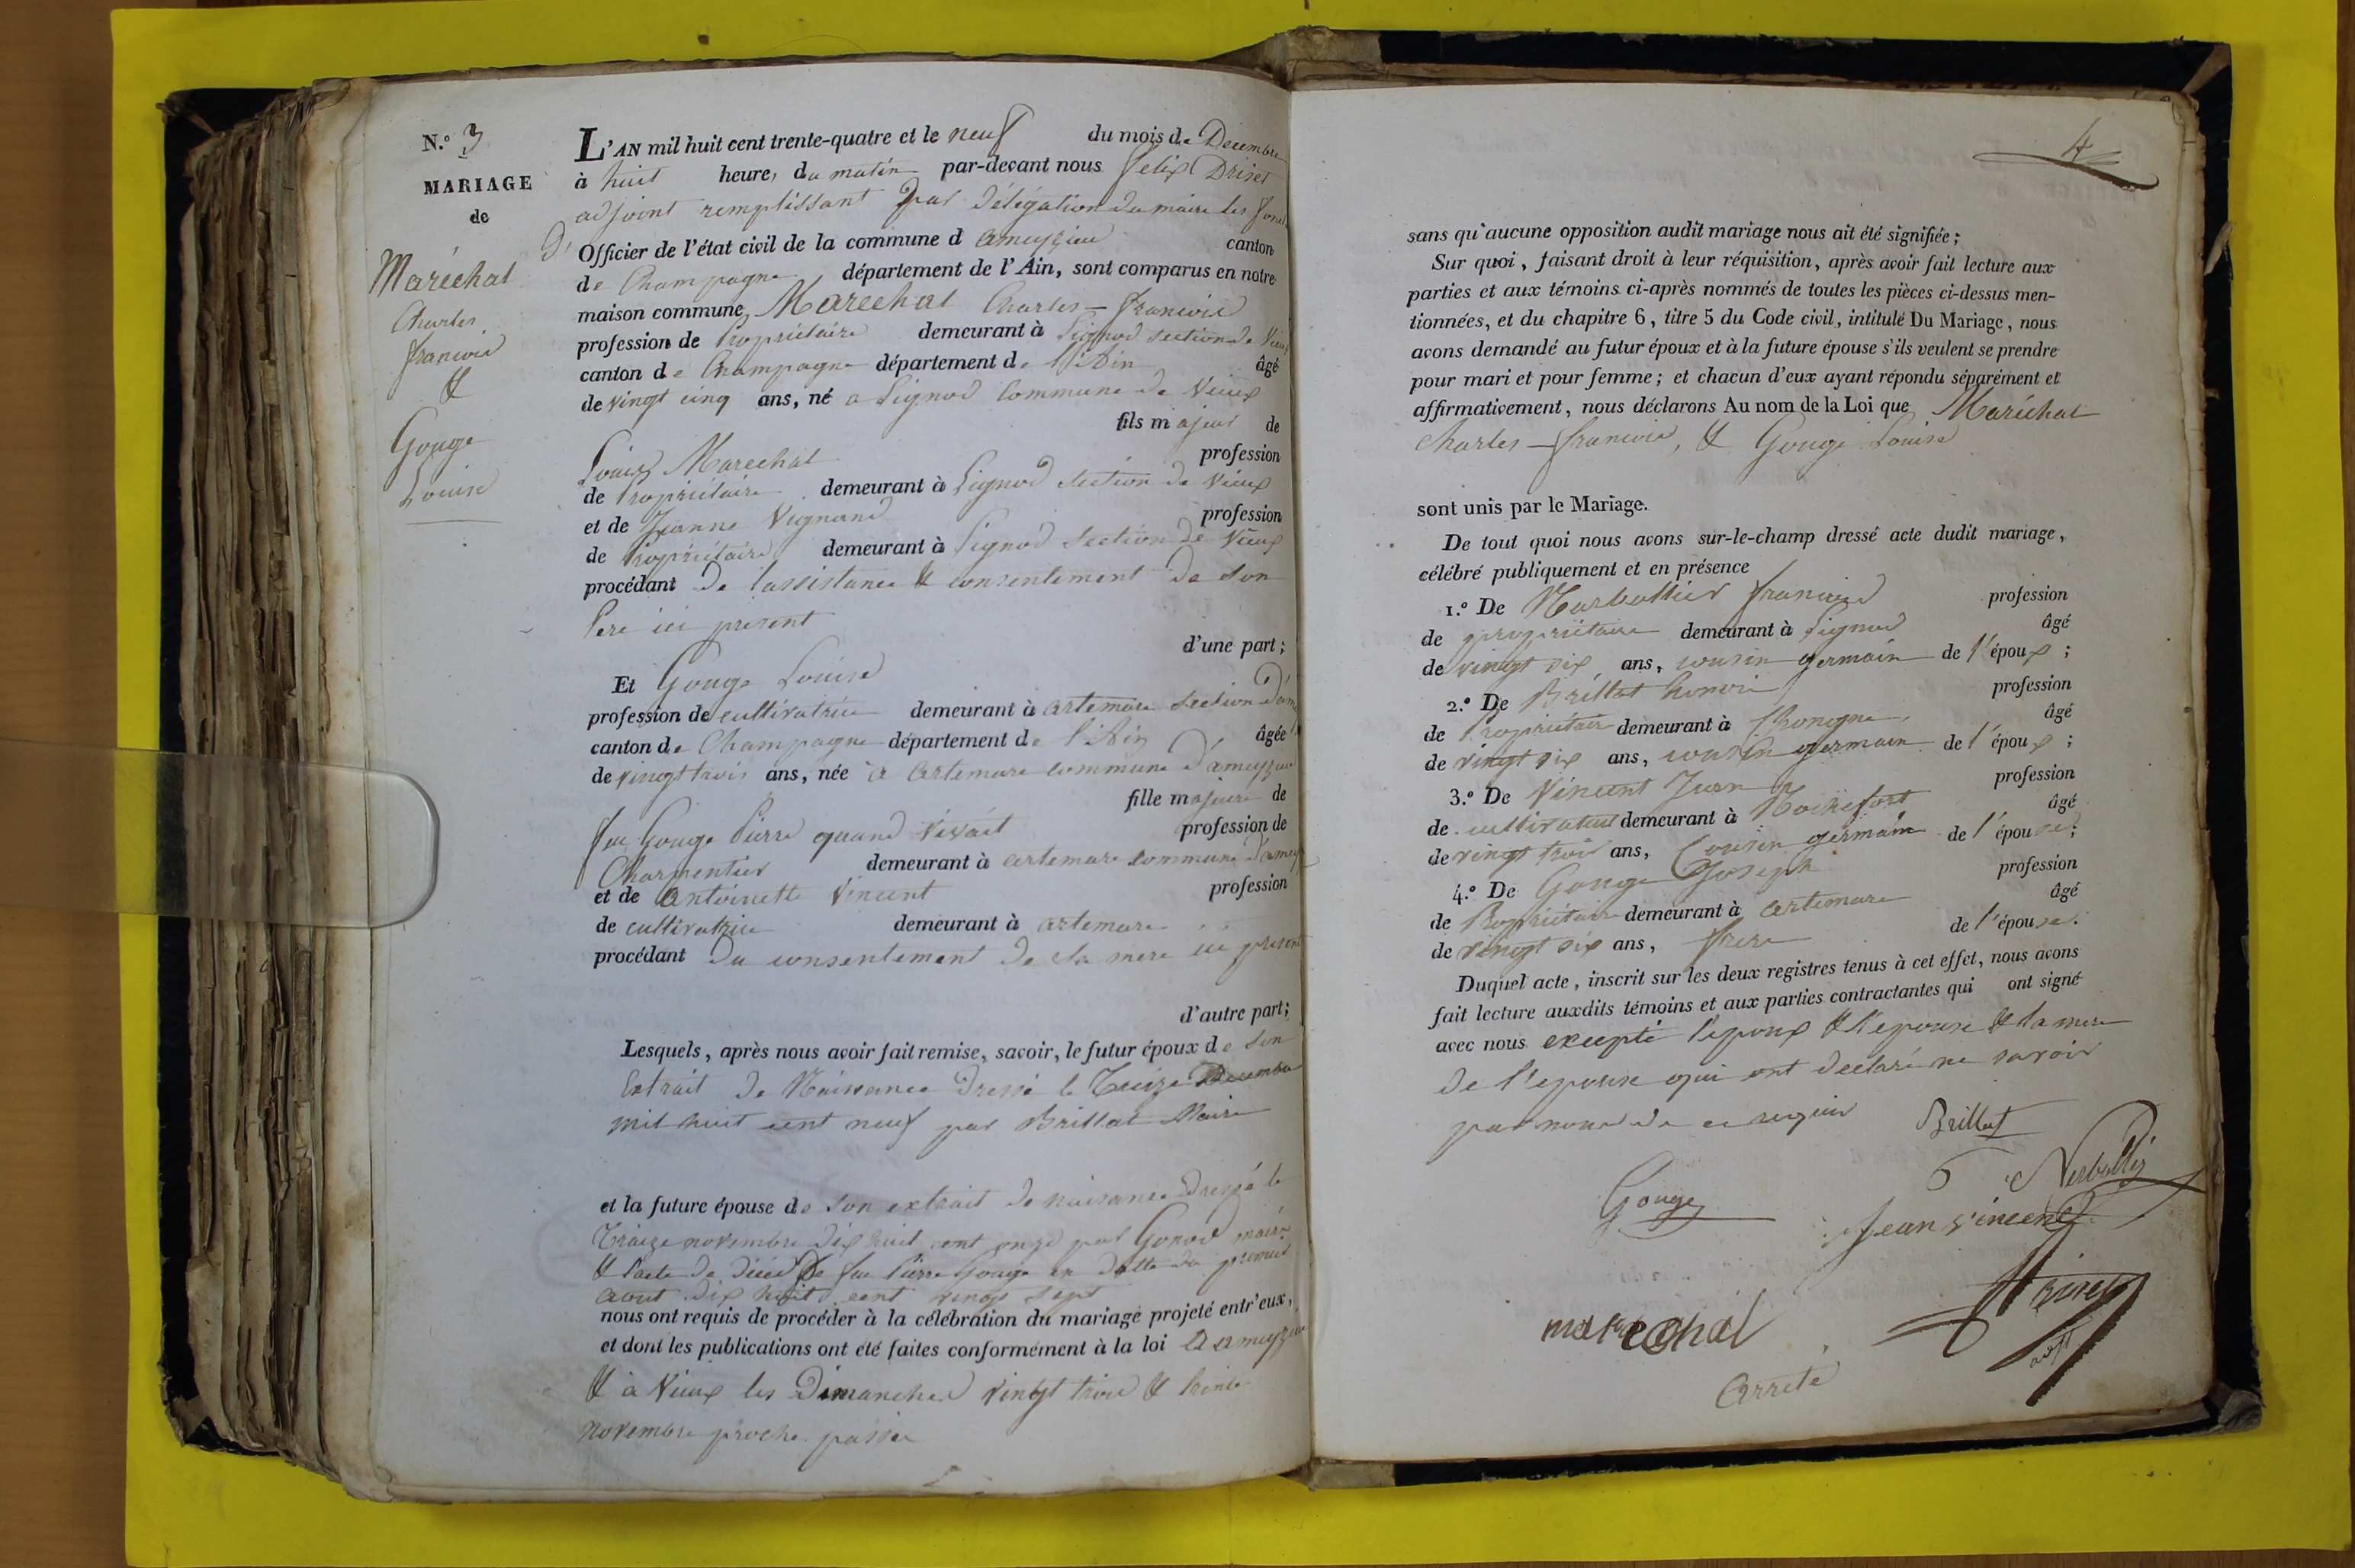 N.º 3
MARIAGE
de
Maréchal
Charles
francois
&
Gouge
Louise
L'AN mil huit cent trente-quatre et le neuf du mois de Decembre
à huit heure, du matin par-devant nous felix
adjoint remplissant par délégation du maire les
d' Officier de l'état civil de la commune d ameyzieu canton
de Champagne, département de l'Ain, sont comparus en notre
maison commune, Marechal Charles-francois
profession de Propriétaire demeurant à Lignod section de Vieux
canton de Champagne département de l'Ain âgé
de vingt cinq ans, né a Lignod Commune de Vieux
fils majeur de
Louis Marechal profession
de Propriétaire demeurant à Lignod Section de Vieux
et de Jeanne Vugnand profession
de Propriétaire demeurant à Lignod Section de Vieux
procédant de l'assistance & consentement de son
Pere ici présent
d'une part;
Et Gouge Louise
profession de cultivatrice demeurant à artemare section
canton de Champagne département de l'Ain âgée
de vingt trois ans, née à artemare commune d'ameyzieu
fille majeure de
feu Gouge Pierre quand vivait profession de
Charpentier demeurant à artemare commune
et de antoinette Vincent profession
de cultivatrice demeurant à artemare
procédant du consentement de sa mere ici present
d'autre part;
Lesquels, après nous avoir fait remise, savoir, le futur époux de son
Extrait de Naissance Dressé le Treize Decembre
mil huit cent neuf par Brillat Maire
et la future épouse de son extrait de naissance dressé le
Traize novembre dix huit cent onze par Gonod maire
& l'acte de décès de feu Pierre Gouge en datte du premier
aout dix huit cent vingt sept
nous ont requis de procéder à la célébration du mariage projeté entr'eux,
et dont les publications ont été faites conformément à la loi a ameyzieu
& à Vieux les Dimanches vingt trois & trente
novembre proche passé
4
sans qu'aucune opposition audit mariage nous ait été signifiée;
Sur quoi, faisant droit à leur réquisition, après avoir fait lecture aux
parties et aux témoins ci-après nommés de toutes les pièces ci-dessus men-
tionnées, et du chapitre 6, titre 5 du Code civil, intitulé Du Mariage, nous
avons demandé au futur époux et à la future épouse s'ils veulent se prendre
pour mari et pour femme; et chacun d'eux ayant répondu séparément et
affirmativement, nous déclarons Au nom de la Loi que Maréchal
Charles-francois, & Gouge Louise
sont unis par le Mariage.
De tout quoi nous avons sur-le-champ dressé acte dudit mariage,
célébré publiquement et en présence
1.º De francois profession
de propriétaire demeurant à Lignod âgé
de vingt six ans, cousin germain de l'époux;
2.º De Brillat profession
de Propriétaire demeurant à âgé
de vingt six ans, cousin germain de l'époux;
3.º De Vincent Jean profession
de cultivateur demeurant à Rochefort âgé
de vingt trois ans, Cousin germain de l'épouse;
4.º De Gouge Joseph profession
de Propriétaire demeurant à artemare âgé
de vingt six ans, frere de l'épouse.
Duquel acte, inscrit sur les deux registres tenus à cet effet, nous avons
fait lecture auxdits témoins et aux parties contractantes qui ont signé
avec nous excepté l'epoux & l'epouse & la mere
de l'epouse qui ont declaré ne savoir
par nous de ce requis
Brillat
Gouge
Jean vincent
marechal
Arreté